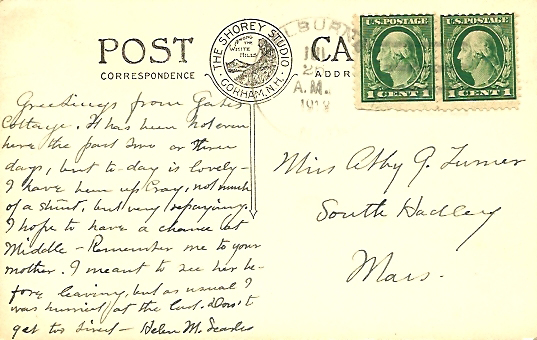 POST CA
CORRESPONDENCE ADDR
THE SHOREY STUDIO
AMONG THE WHITE HILLS
GORHAM, N.H.
LBUR
JUL
A.M.
U.S. POSTAGE
1 CENT 1
U.S. POSTAGE
1 CENT 1
Greetings from Gates
Cottage. It has been hot even
here the past two or three
days, but to-day is lovely-
I have been up Cray, not much
of a stunt, but very repaying.
I hope to have a chance at
Middle - Remember me to your
mother. I meant to see her be-
fore leaving, but as usual I
was hurried at the last. Don't
get too tired - Helen M. Searles
Miss Abby G. Turner
South Hadley
Mass.